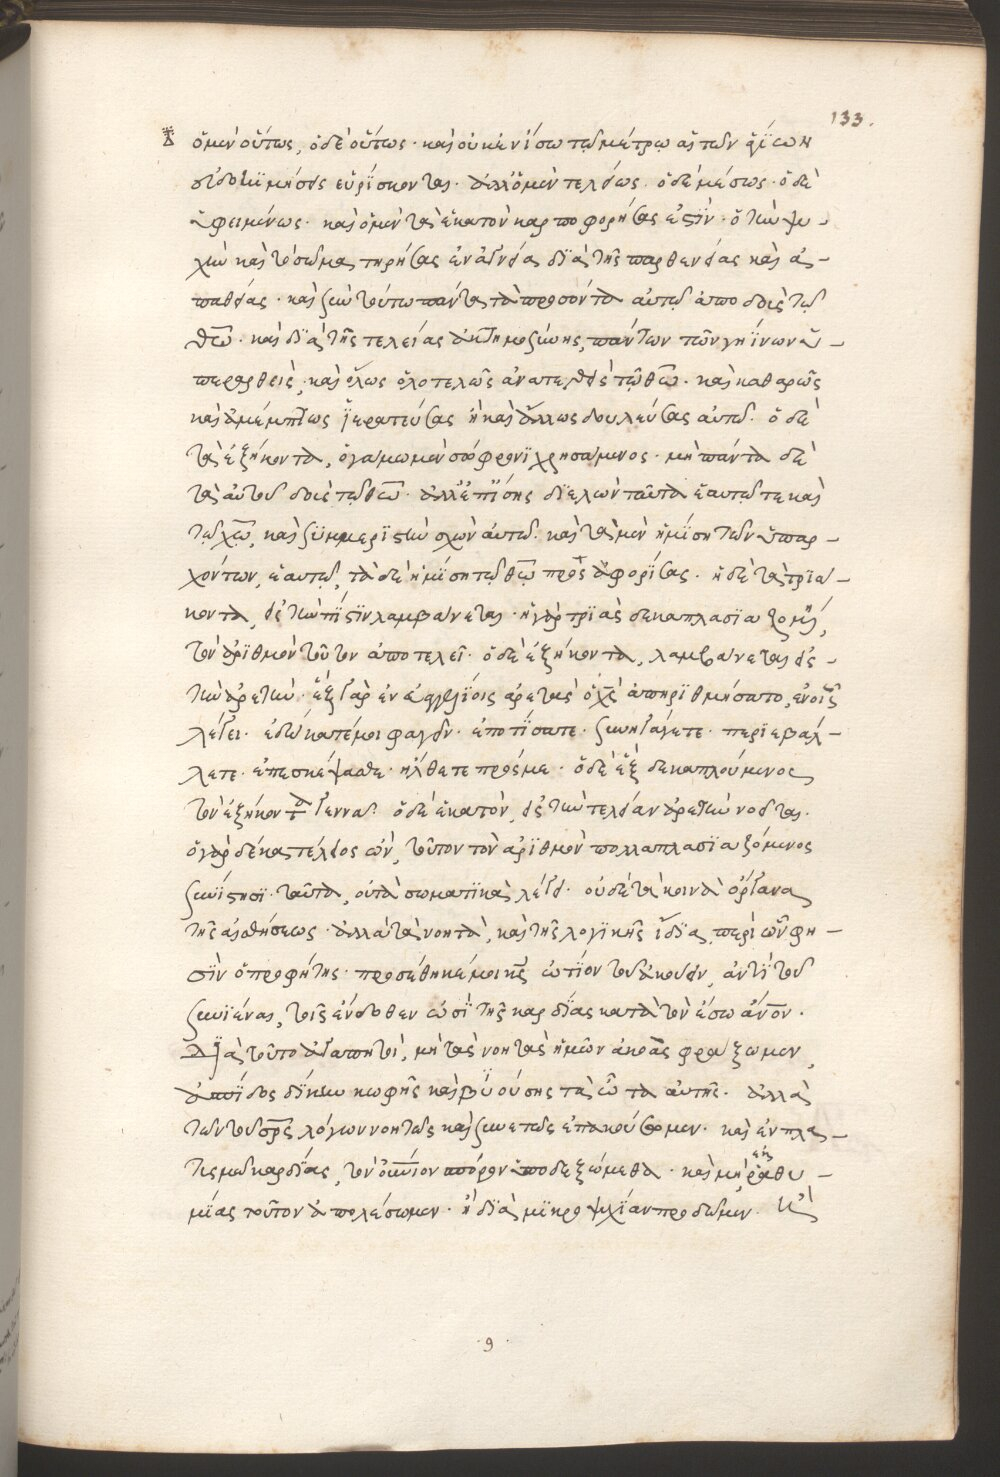 133.
ὁ μὲν οὕτως, ὁ δὲ οὕτως· καὶ οὐκ ἐν ἴσω τῶ μέτρω
εὑρίσκονται· ἀλλ' ὁ μὲν τελείως· ὁ δὲ μέσως· ὁ δὲ
ὑφειμένως· καὶ ὁ μὲν τὰ ἑκατὸν καρποφορήσας ἐστὶν· ὁ τὴν ψυ-
χὴν καὶ τὸ σῶμα τηρήσας ἐν ἁγνείᾳ διὰ τῆς παρθενείας καὶ ἀ-
παθείας· καὶ σὺν τούτω πάντα τὰ προσόντα αὐτῶ ἀποδοὺς τῶ
θῶ· καὶ διὰ τῆς τελείας ἀκτημοσύνης, πάντων τῶν γηΐνων ὑ-
περαρθεὶς· καὶ ὅλως ὁλοτελῶς ἀνατεθεὶς τῶ θῶ· καὶ καθαρῶς
καὶ ἀμέμπτως ἱερατεύσας ἢ καὶ ἄλλως δουλεύσας αὐτῶ· ὁ δὲ
τὰ ἑξήκοντα, ὁ γάμω μὲν σώφρονι χρησάμενος· μὴ πάντα δὲ
τὰ αὐτοῦ δοὺς τῶ θῶ· ἀλλ' ἐπίσης διελὼν ταῦτα ἑαυτῶ τε καὶ
τῶ χῶ, καὶ συμμεριστὴν σχὼν αὐτῶ· καὶ τὰ μὲν ἡμίση τῶν ὑπαρ-
χόντων, ἑαυτῶ, τὰ δὲ ἡμίση τῶ θῶ προσαφορίσας· ὁ δὲ τὰ τριά-
κοντα, εἰς τὴν πίστιν λαμβάνεται· ἡ γὰρ τριὰς δεκαπλασιαζομένη,
τὸν ἀριθμὸν τοῦτον ἀποτελεῖ· ὁ δὲ ἑξήκοντα, λαμβάνεται εἰς
τὴν ἀρετὴν· ἓξ γὰρ ἐν εὐαγγελίοις ἀρετὰς ὁ χς ἀπηριθμήσατο, ἐν οἷς
λέγει· ἐδώκατέ μοι φαγεῖν· ἐποτίσατε· συνηγάγετε· περιεβάλ-
λετε· ἐπεσκέψασθε· ἤλθετε πρός με· ὁ δὲ ἓξ δεκαπλούμενος
τὸν ἑξήκοντα γεννᾶ· ὁ δὲ ἑκατὸν, εἰς τὴν τελείαν ἀρετὴν νοεῖται·
ὁ γὰρ δέκα τέλειος ὢν, τοῦτον τὸν ἀριθμὸν πολλαπλασιαζόμενος
συνίστησι· ταῦτα, οὐ τὰ σωματικὰ λέγει· οὐδὲ τὰ κοινὰ ὄργανα
τῆς αἰσθήσεως· ἀλλὰ τὰ νοητὰ, καὶ τῆς λογικῆς ἴδια, περὶ ὧν φη-
σὶν ὁ προφήτης· προσέθηκέ μοι κς ὠτίον τοῦ ἀκούειν, ἀντὶ τοῦ
συνιέναι, τοῖς ἔνδοθεν ὠσὶ τῆς καρδίας κατὰ τὸν ἔσω ἄνον·
Διὰ τοῦτο ἀγαπητοὶ, μὴ τὰς νοητὰς ἡμῶν ἀκοὰς φράξωμεν,
ἀσπίδος δίκην κωφῆς καὶ βυούσης τὰ ὦτα αὐτῆς· ἀλλὰ
τῶν τοῦ σρς λόγων νοητῶς καὶ συνετῶς ἐπακούσωμεν· καὶ ἐν πλα-
τεία καρδίας, τὸν οὐνιον σπόρον ὑποδεξώμεθα· καὶ μὴ ἐκ ῥαθυ-
μίας τοῦτον ἀπολέσωμεν· ἢ διὰ μικροψυχίαν προδῶμεν·
9